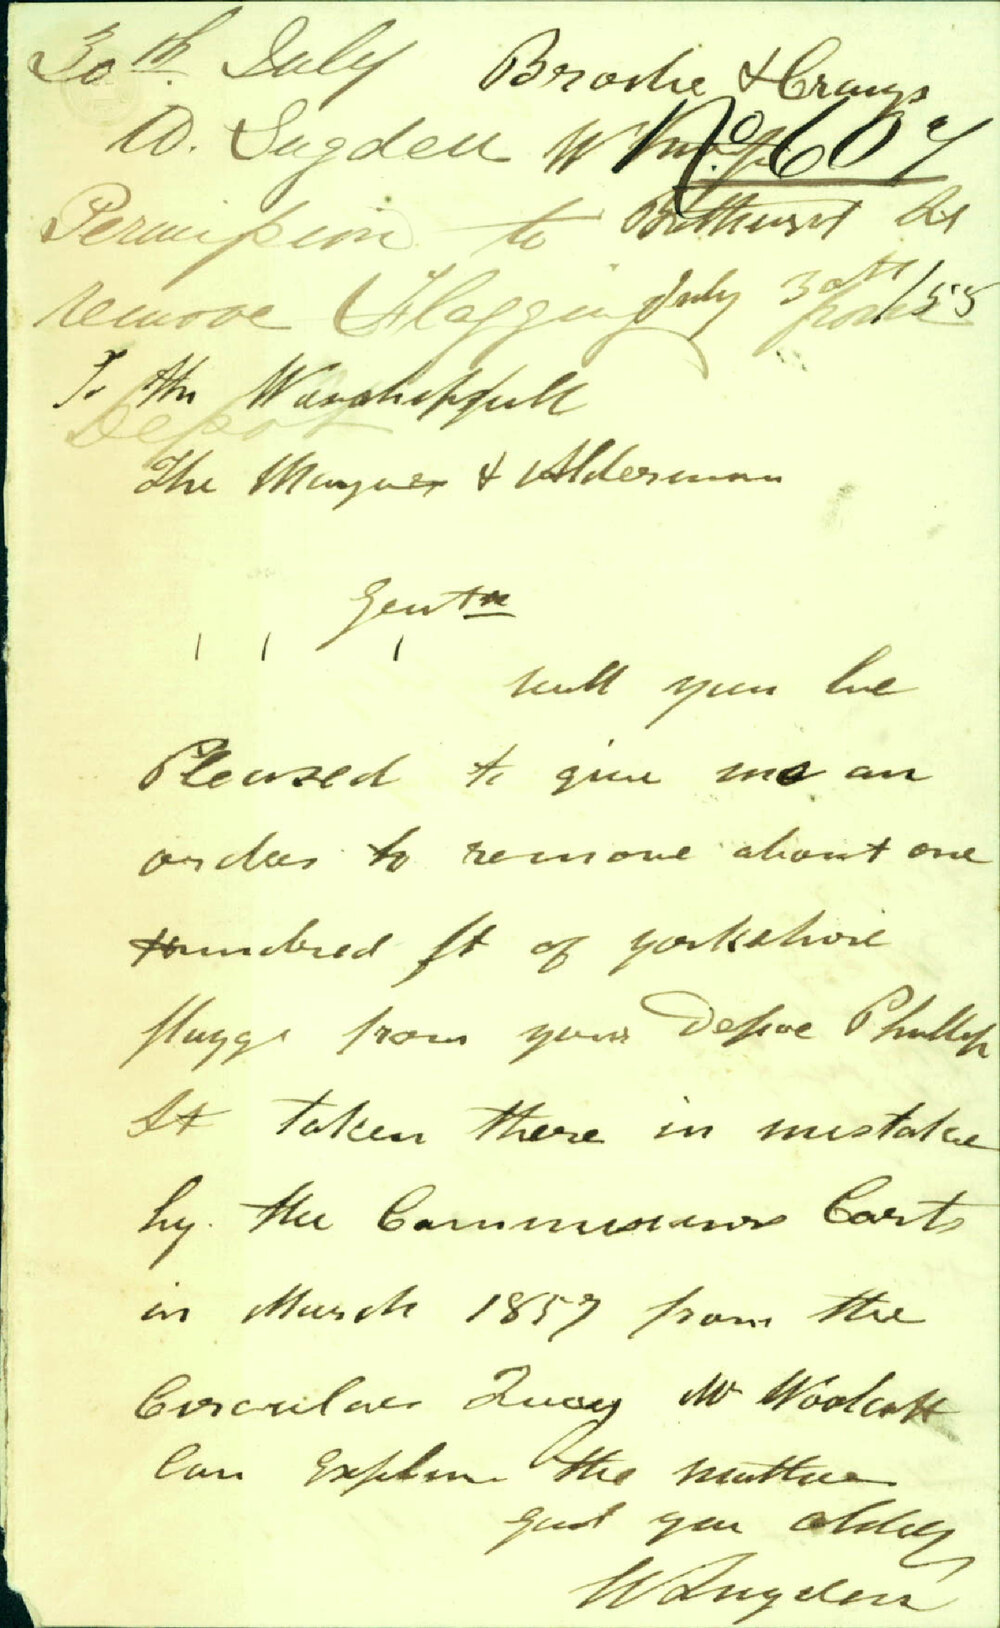 30th. July
W. Sugden
Permission to
remove Flagging from
Depot
Brodie & Craigs
No. 607
Wharf
Bathurst St
July 30th /55
To the Warshipfull
The Mayner & Alderman
Gentn
will you be
Pleased to give me an
order to remove about one
Hundred ft of yorkshire
flaggs from your Depoe Phillip
St taken there in mistake
by. the Commissiners Carts
in March 1857 from the
Circular Quay Mr Woolcott
Can Explan the matter
Gent you obldg
W Sugden